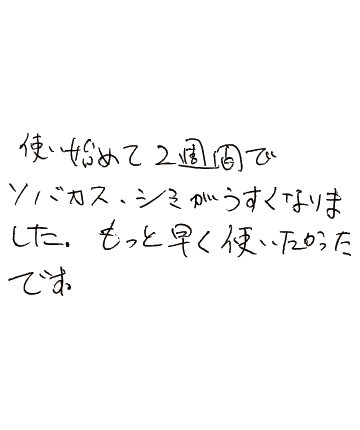 使い始めて2週間で
ソバカス、シミがうすくなりま
した。もっと早く使いたかった
です。